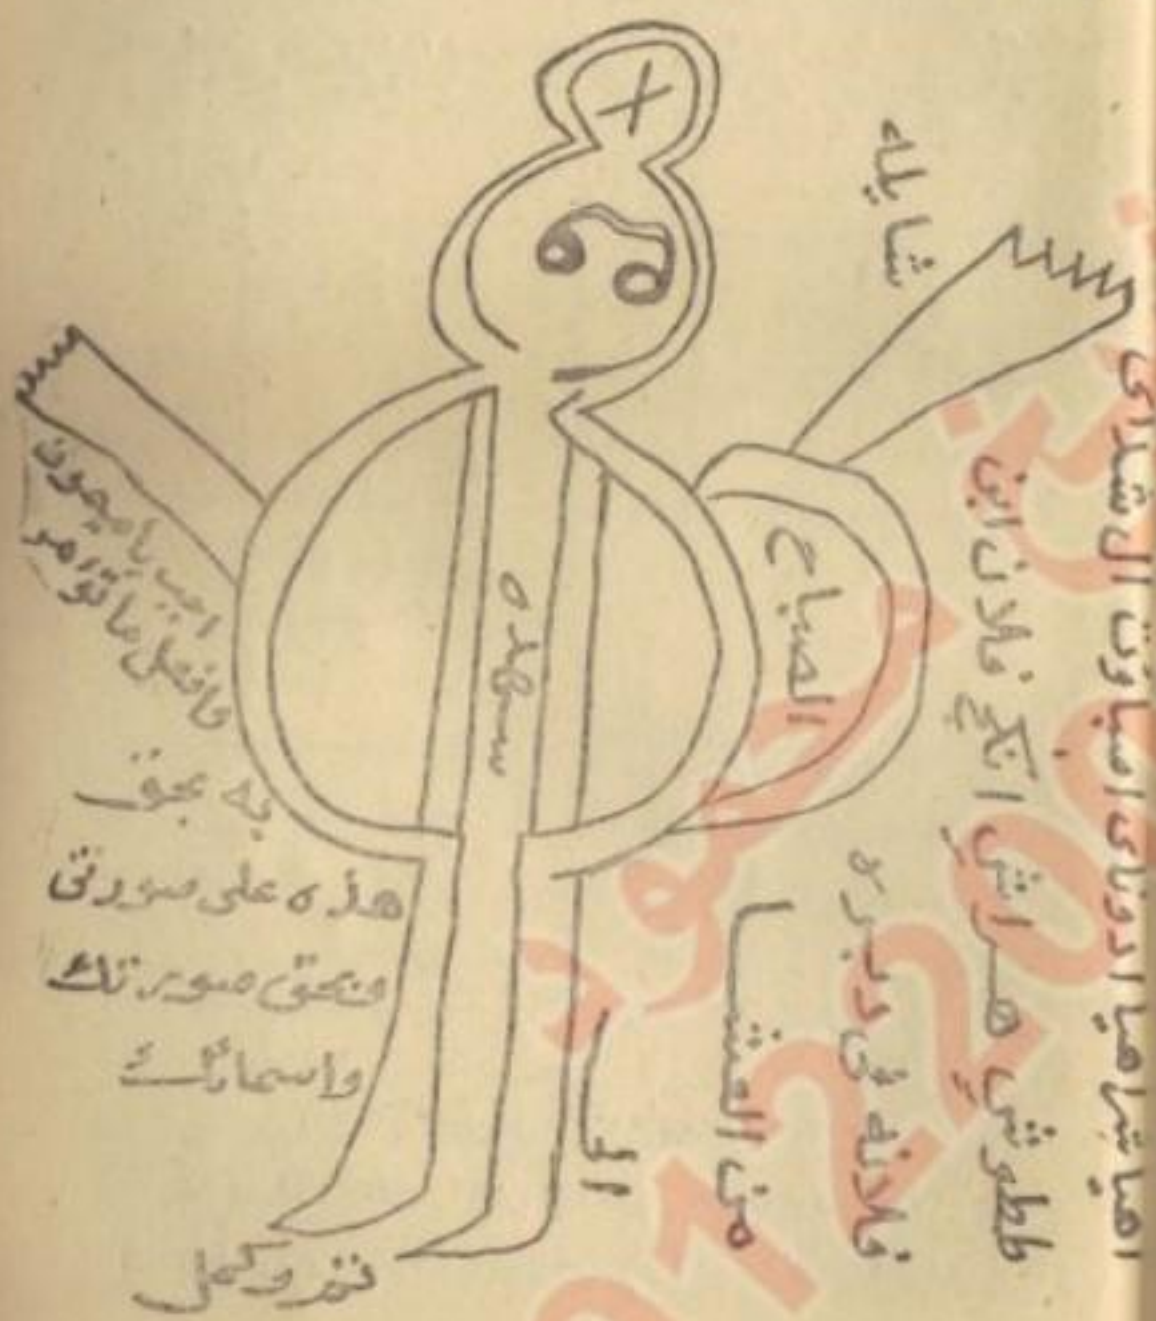 اهيا شراهيا ادوناى اصباؤت ال شداى
ططرش هراش انكح فلان ابن
فلانه فى دبره
شايله
من العشا
الى
الصباح
سهله
اجب يا ميمون
وافعل ما تؤمر
به بحق
هذه على صورتى
وبحق صورتك
واسمائك
تم وكمل